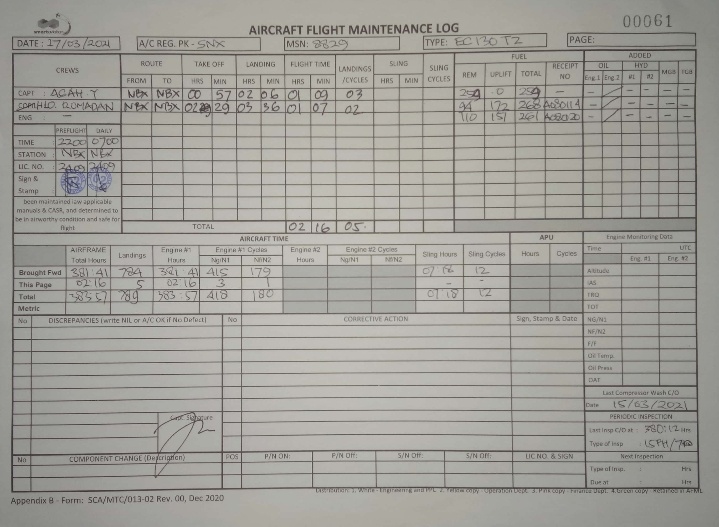 00061
AIRCRAFT FLIGHT MAINTENANCE LOG
DATE : 17/03/2021 A/C REG. PK - SNX MSN: 8829 TYPE: EC 130 T2 PAGE:
CREWS ROUTE TAKE OFF LANDING FLIGHT TIME LANDINGS /CYCLES SLING SLING CYCLES FUEL ADDED
FROM TO HRS MIN HRS MIN HRS MIN HRS MIN REM UPLIFT TOTAL RECEIPT NO OIL Eng.1 Eng.2 HYD #1 #2 MGB TGB
CAPT : AGAH.Y NBX NBX 00 57 02 06 01 09 03 259 0 259 -
ROMADAN NBX NBX 02 29 03 36 01 07 02 94 172 A080114
ENG : - 110 151 261 A080120
PREFLIGHT DAILY
TIME 2200 0700
STATION : NBX NBX
LIC. NO. 2409 2409
Sign & Stamp
been maintained iaw applicable
manuals & CASR, and determined to
be in airworthy condition and safe for
flight
TOTAL 02 16 05.
AIRCRAFT TIME APU Engine Monitoring Data
AIRFRAME Total Hours Landings Engine #1 Hours Engine #1 Cycles Ng/N1 Nf/N2 Engine #2 Hours Engine #2 Cycles Ng/N1 Nf/N2 Sling Hours Sling Cycles Hours Cycles
Time UTC
Eng. #1 Eng. #2
Brought Fwd 381:41 784 381:41 415 179 12 Altitude
This Page 02:16 5 02:16 3 1 - - IAS
Total 383:57 789 383:57 418 180 12 TRQ
Metric TOT
No DISCREPANCIES (write NIL or A/C OK if No Defect) No CORRECTIVE ACTION Sign, Stamp & Date NG/N1
NF/N2
F/F
Oil Temp.
Oil Press
OAT
Last Compressor Wash C/O
Date 15/03/2021
Capt. Signature
PERIODIC INSPECTION
Last Insp C/O at : 380:12 Hrs
Type of Insp
No COMPONENT CHANGE (Description) POS P/N ON: P/N Off: S/N Off: S/N Off: LIC NO. & SIGN Next Inspection
Type of Insp. Hrs
Due at Hrs
Distribution: 1. White - Engineering and PPC 2. Yellow copy - Operation Dept. 3. Pink copy - Finance Dept. 4.Green copy - Retained in AFML
Appendix B - Form: SCA/MTC/013-02 Rev. 00, Dec 2020